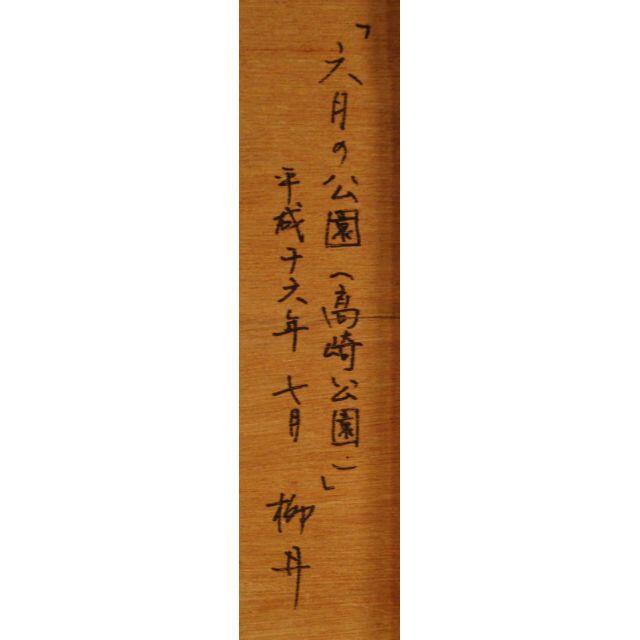 「六月の公園(高崎公園)」
平成十六年 七月 柳井